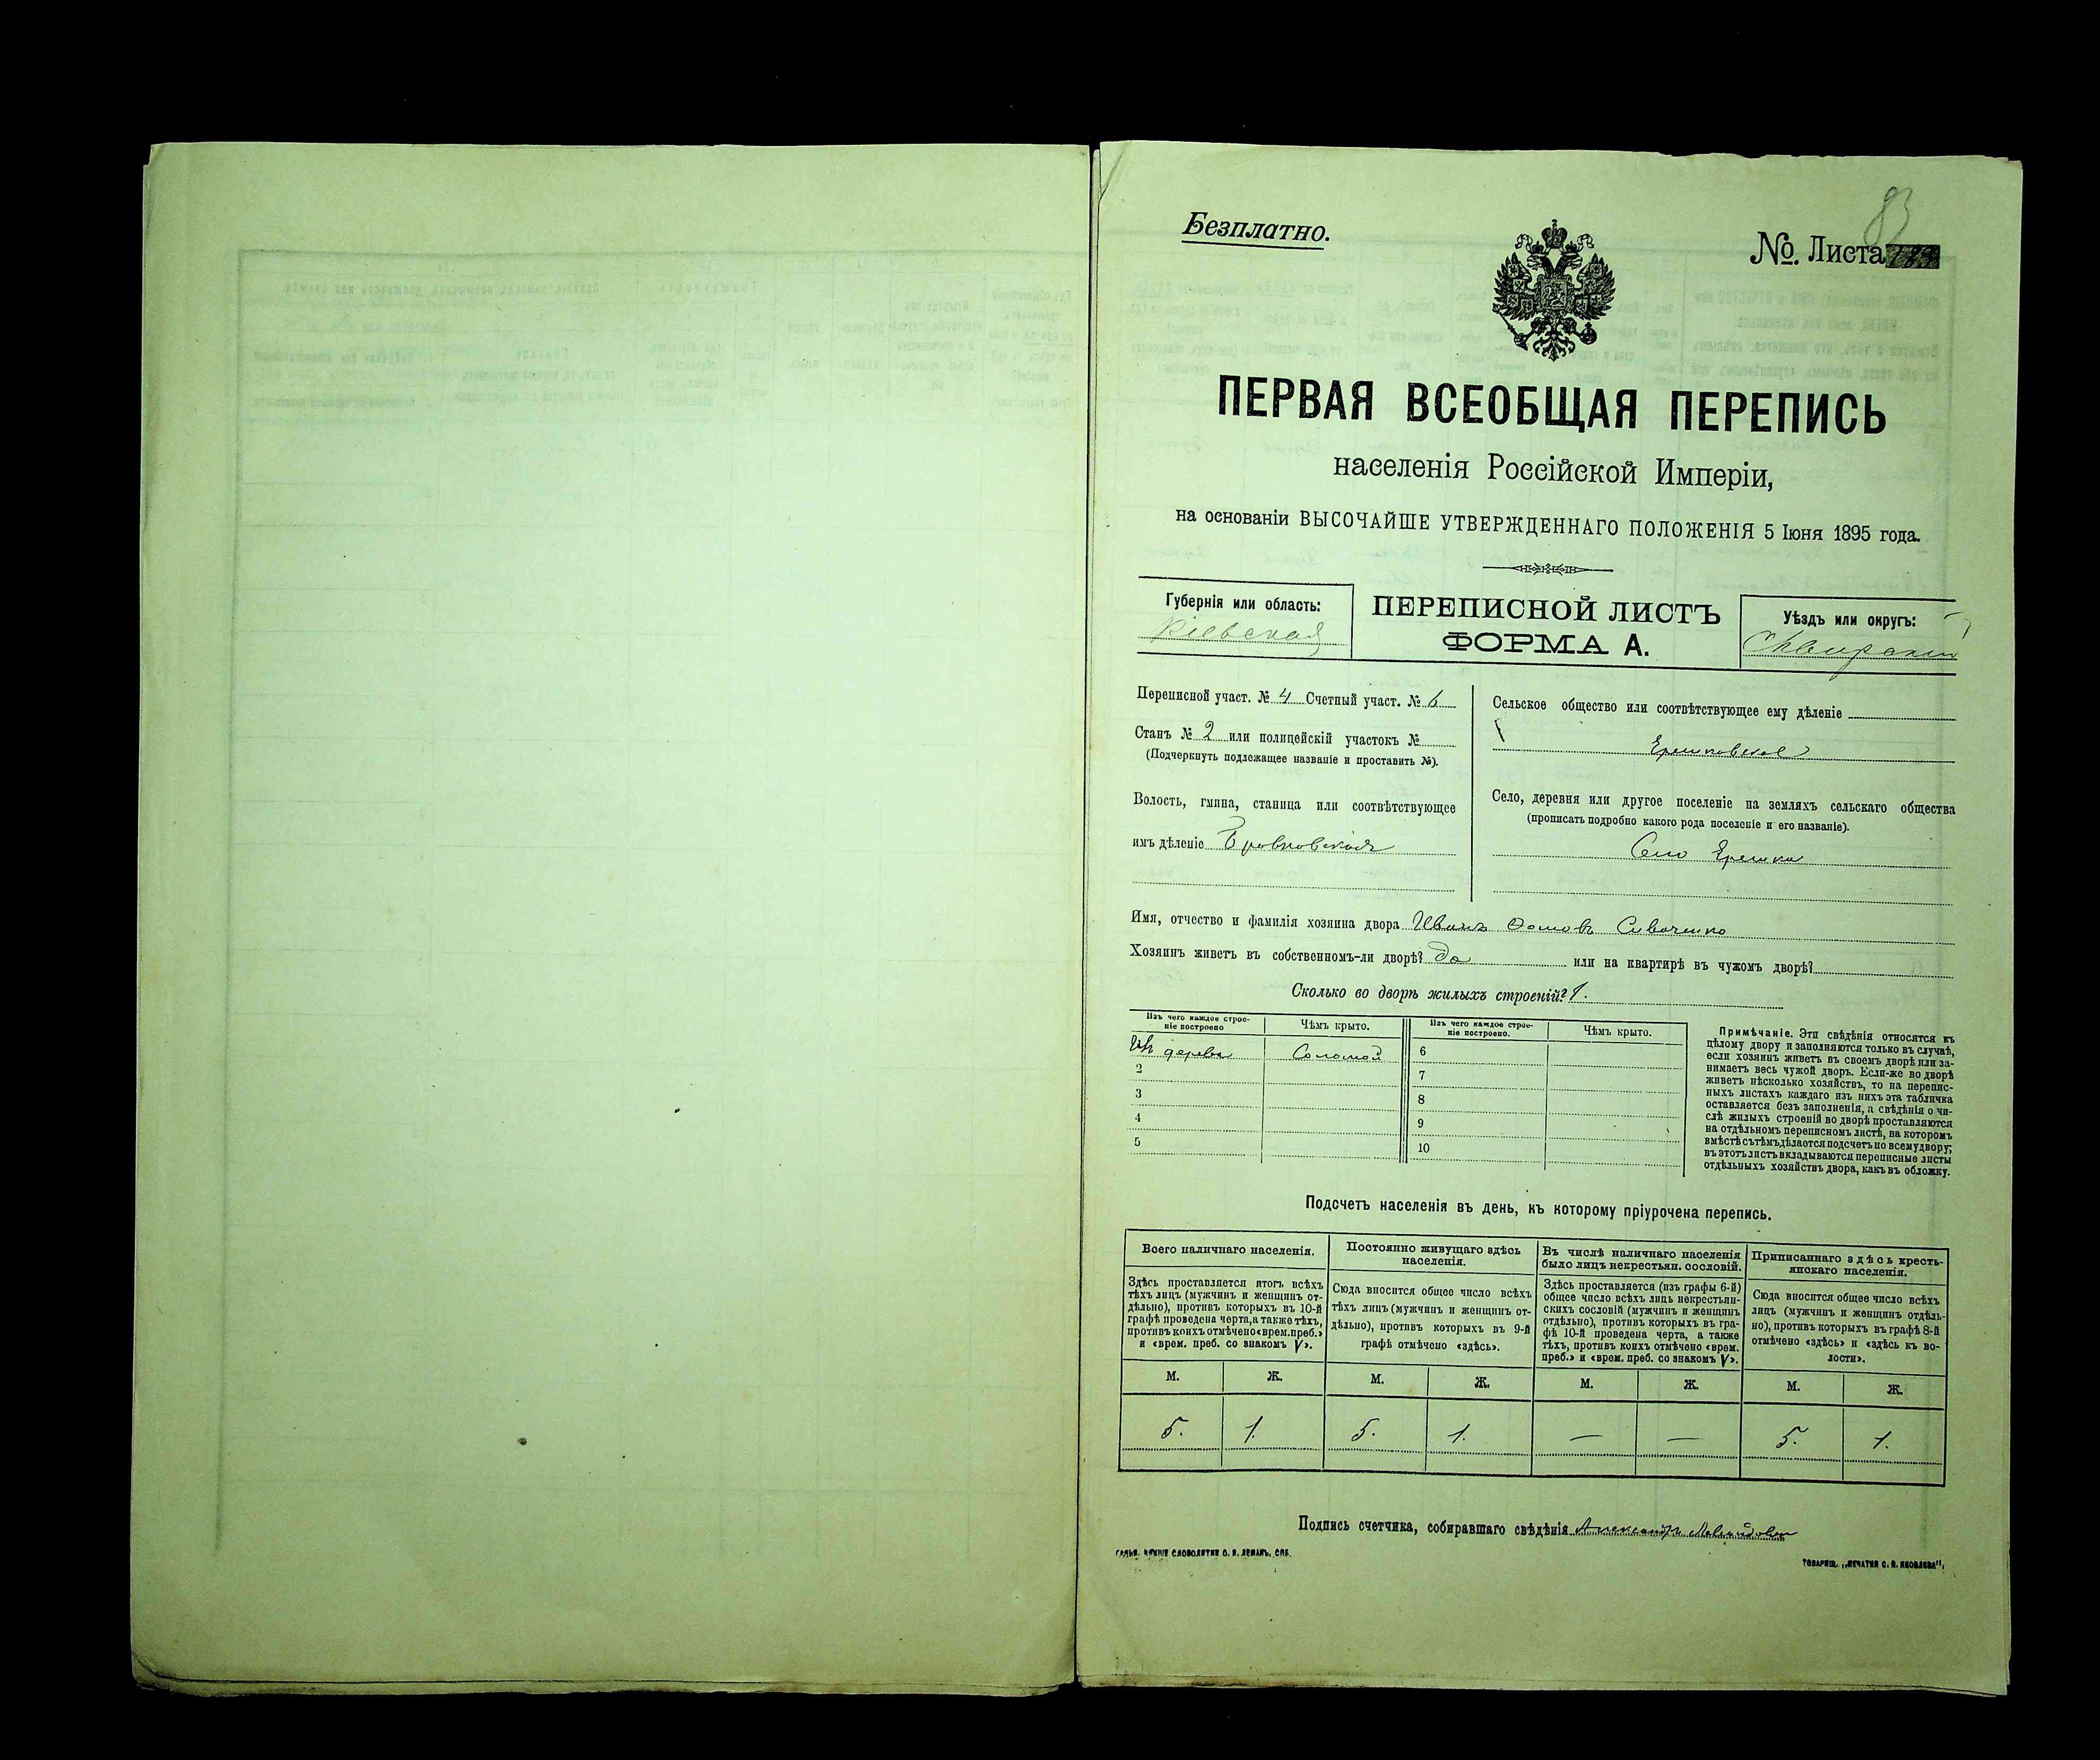 83
Безплатно.
№. Листа
ПЕРВАЯ ВСЕОБЩАЯ ПЕРЕПИСЬ
населенія Россійской Имперіи,
на основаніи ВЫСОЧАЙШЕ УТВЕРЖДЕННАГО ПОЛОЖЕНІЯ 5 Іюня 1895 года.
Губернія или область:
Кіевская
ПЕРЕПИСНОЙ ЛИСТЪ
ФОРМА А.
Уѣздъ или округъ:
Сквирскій
Переписной участ. № 4 Счетный участ. № 6
Станъ № 2 или полицейскій участокъ №
(Подчеркнуть подлежащее названіе и проставить №).
Волость, гмина, станица или соотвѣтствующее
имъ дѣленіе Бровковская
Сельское общество или соотвѣтствующее ему дѣленіе
Ерешковское
Село, деревня или другое поселеніе на земляхъ сельскаго общества
(прописать подробно какого рода поселеніе и его названіе).
Село Ерешки
Имя, отчество и фамилія хозяина двора Иванъ Сивоченко
Хозяинъ живетъ въ собственномъ-ли дворѣ? да или на квартирѣ въ чужомъ дворѣ?
Сколько во дворѣ жилыхъ строеній? 1.
Изъ чего каждое строе-
ніе построено
Чѣмъ крыто.
Изъ чего каждое строе-
ніе построено.
Чѣмъ крыто.
дерева Соломой 6
2 7
3 8
4 9
5 10
Примѣчаніе. Эти свѣдѣнія относятся къ
цѣлому двору и заполняются только въ случаѣ,
если хозяинъ живетъ въ своемъ дворѣ или за-
нимаетъ весь чужой дворъ. Если-же во дворѣ
живетъ нѣсколько хозяйствъ, то на перепис-
ныхъ листахъ каждаго изъ нихъ эта табличка
оставляется безъ заполненія, а свѣдѣнія о чи-
слѣ жилыхъ строеній во дворѣ проставляются
на отдѣльномъ переписномъ листѣ, на которомъ
вмѣстѣ съ тѣмъ дѣлается подсчетъ по всему двору;
въ этотъ листъ вкладываются переписные листы
отдѣльныхъ хозяйствъ двора, какъ въ обложку.
Подсчетъ населенія въ день, къ которому пріурочена перепись.
Всего наличнаго населенія.
Здѣсь проставляется итогъ всѣхъ
тѣхъ лицъ (мужчинъ и женщинъ от-
дѣльно), противъ которыхъ въ 10-й
графѣ проведена черта, а также тѣхъ,
противъ коихъ отмѣчено «врем. преб.»
и «врем. преб. со знакомъ V».
Постоянно живущаго здѣсь
населенія.
Сюда вносится общее число всѣхъ
тѣхъ лицъ (мужчинъ и женщинъ от-
дѣльно), противъ которыхъ въ 9-й
графѣ отмѣчено «здѣсь».
Въ числѣ наличнаго населенія
было лицъ некрестьян. сословій.
Здѣсь проставляется (изъ графы 6-й)
общее число всѣхъ лицъ некрестьян-
скихъ сословій (мужчинъ и женщинъ
отдѣльно), противъ которыхъ въ гра-
фѣ 10-й проведена черта, а также
тѣхъ, противъ коихъ отмѣчено «врем.
преб.» и «врем. преб. со знакомъ V».
Приписаннаго здѣсь кресть-
янскаго населенія.
Сюда вносится общее число всѣхъ
лицъ (мужчинъ и женщинъ отдѣль-
но), противъ которыхъ въ графѣ 8-й
отмѣчено «здѣсь» и «здѣсь къ во-
лости».
М. Ж. М. Ж. М. Ж. М. Ж.
5. 1. 5. 1. — — 5. 1.
Подпись счетчика, собиравшаго свѣдѣнія Александръ
СЛОВОЛИТНИ О. И. ЛЕМАНЪ, СПБ.
ТОВАРИЩ. „ПЕЧАТНЯ С. П. ЯКОВЛЕВА".